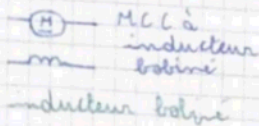 M MCC à
inducteur
bobiné
inducteur bobiné